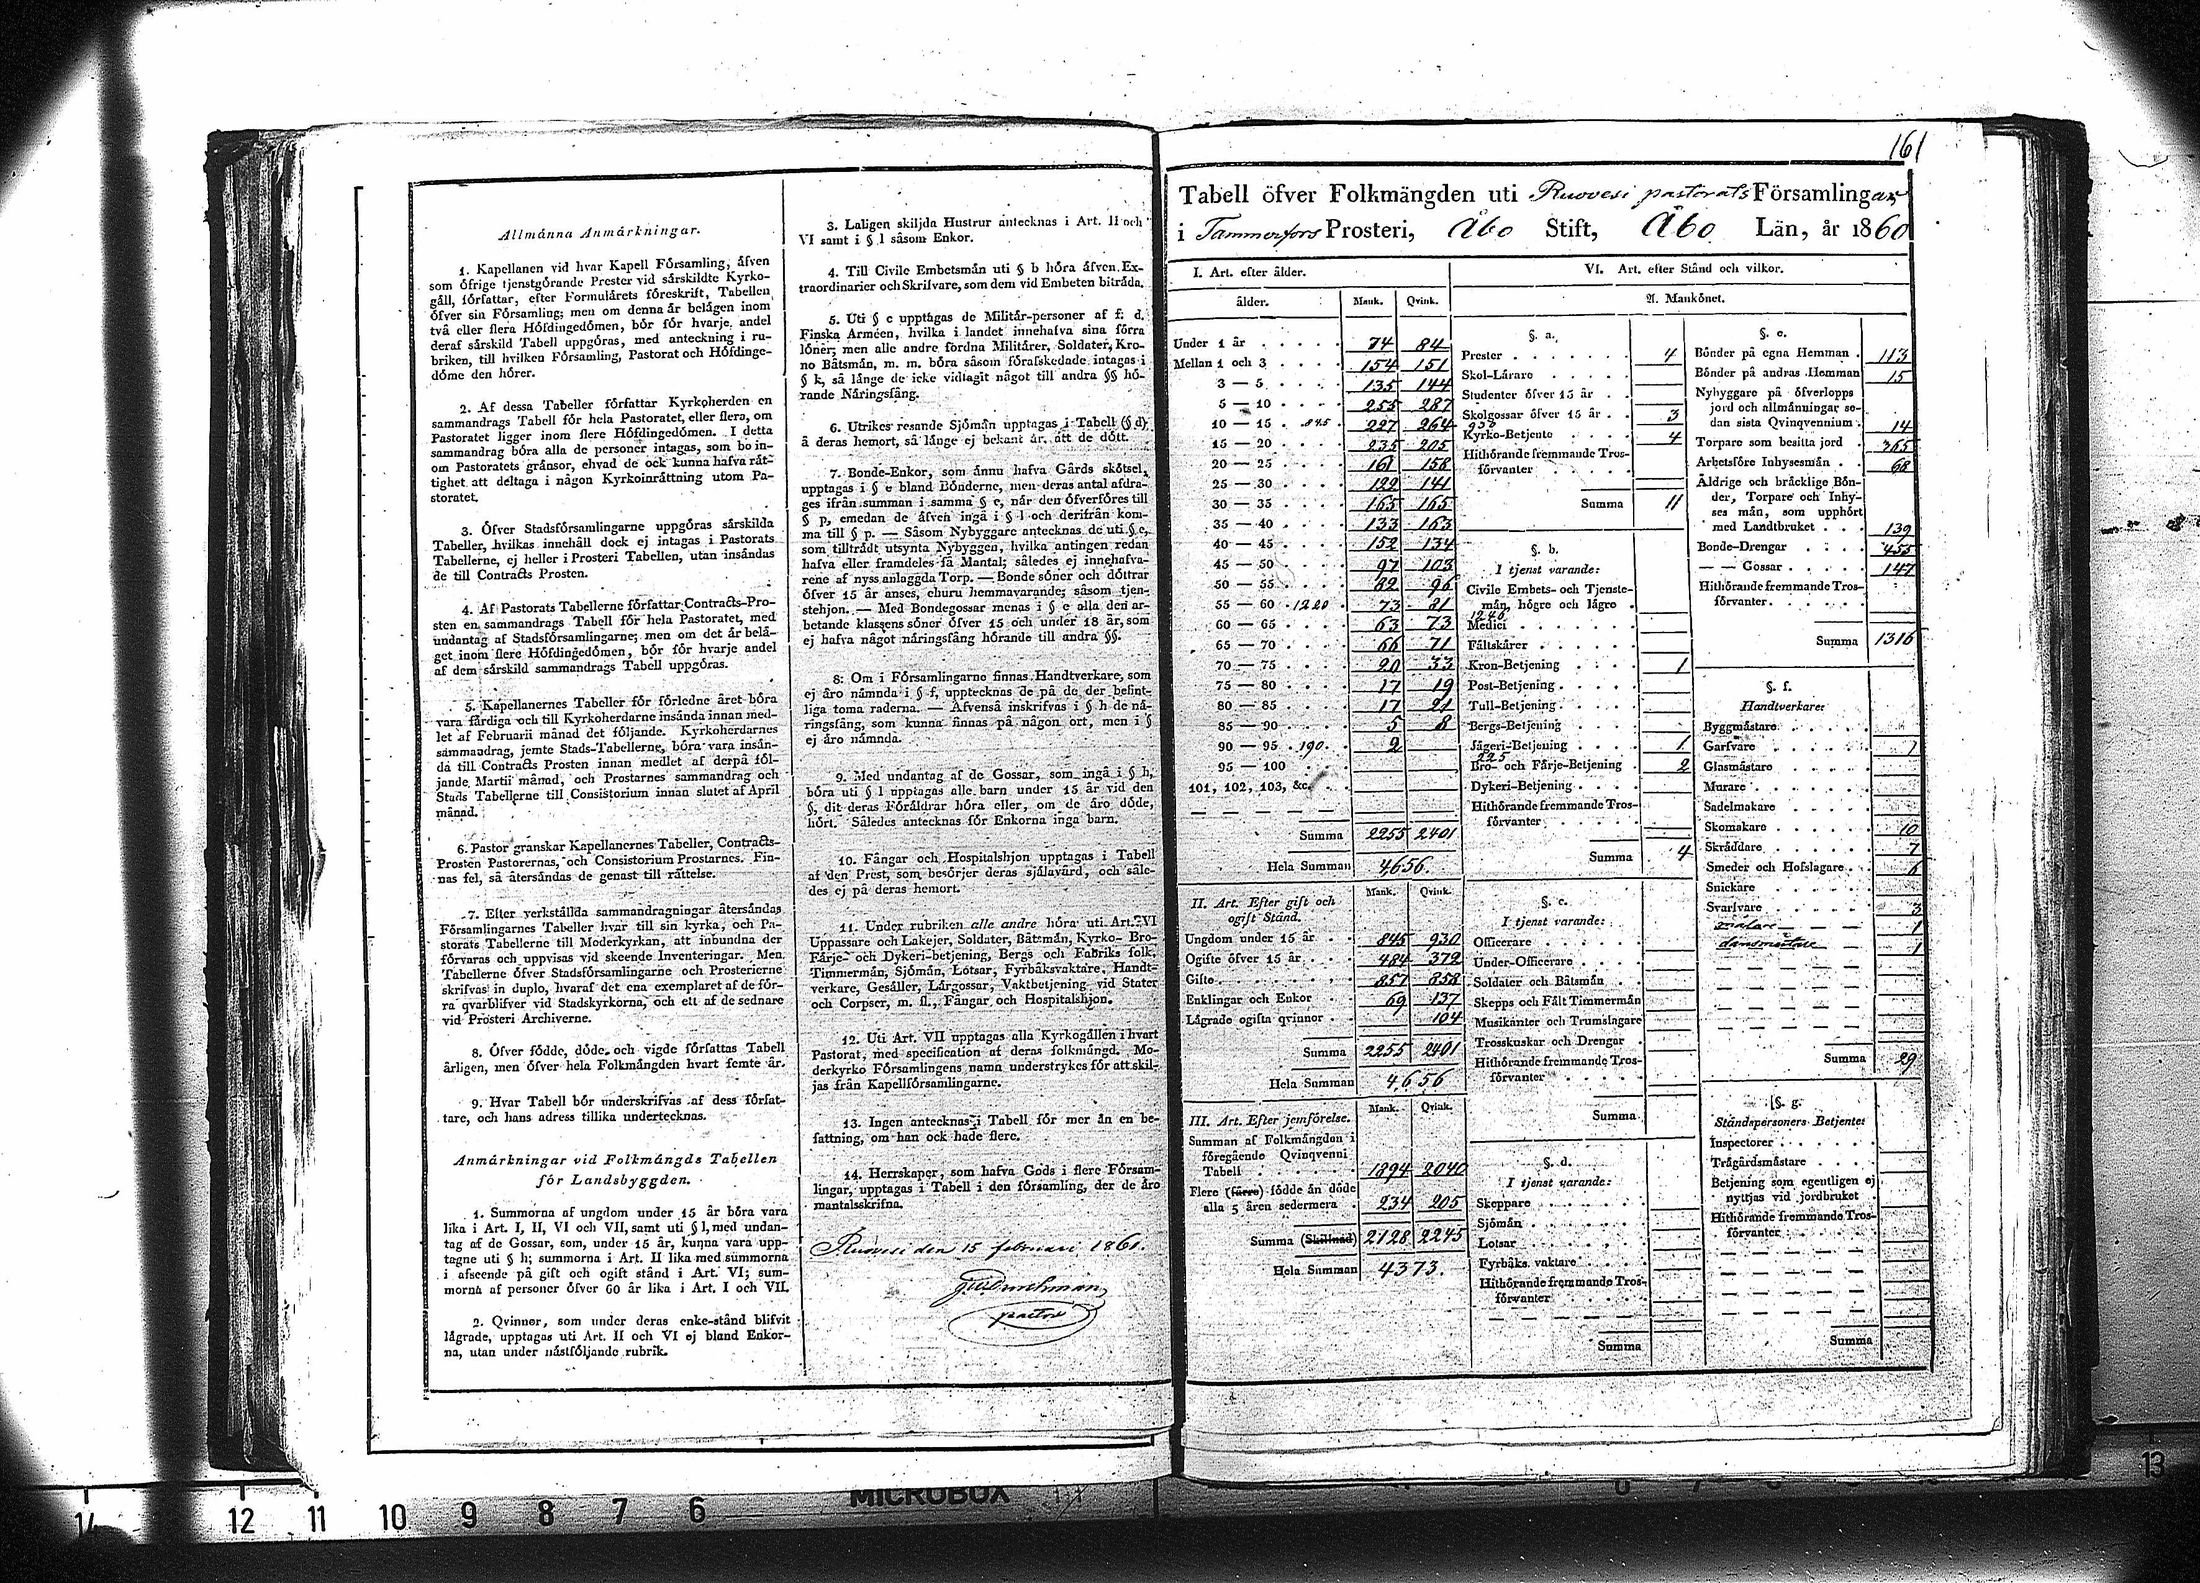 Allmånna Anmårkningar.
1. Kapellanen vid hvar Kapell Fórsamling, åfven
som ófrige tjenstgórande Prester vid sårskildte Kyrko-
gåll, fórfattar, efter Formulårets fóreskrift, Tabellen
ófver sin Fórsamling; men om denna år belågen inom
två eller flera Hófdingedómen, bór fór hvarje andel
deraf sårskild Tabell uppgóras, med anteckning i ru-
briken, till hvilken Fórsamling, Pastorat och Hófdinge-
dóme den hórer.
2. Af dessa Tabeller fórfattar Kyrkoherden en
sammandrags Tabell fór hela Pastoratet, eller flera, om
Pastoratet ligger inom flere Hófdingedómen. I detta
sammandrag bóra alla de personer intagas, som bo in-
om Pastoratets grånsor, ehvad de ock kunna hafva råt-
tighet att deltaga i någon Kyrkoinråttning utom Pa-
storatet.
3. Ófver Stadsfórsamlingarne uppgóras sårskilda
Tabeller, hvilkas innehåll dock ej intagas i Pastorats
Tabellerne, ej heller i Prosteri Tabellen, utan insåndas
de till Contracts Prosten.
4. Af Pastorats Tabellerne fórfattar Contracts-Pro-
sten en sammandrags Tabell fór hela Pastoratet, med
undantag af Stadsfórsamlingarne; men om det år belå-
get inom flere Hófdingedómen, bór fór hvarje andel
af dem sårskild sammandrags Tabell uppgóras.
5. Kapellanernes Tabeller fór fórledne året bóra
vara fårdiga och till Kyrkoherdarne insånda innan med-
let af Februarii månad det fóljande. Kyrkoherdarnes
sammandrag, jemte Stads-Tabellerne, bóra vara insån-
da till Contracts Prosten innan medlet af derpå fól-
jande Martii månad, och Prostarnes sammandrag och
Stads Tabellerne till Consistorium innan slutet af April
månad.
6. Pastor granskar Kapellanernes Tabeller, Contracts-
Prosten Pastorernas, och Consistorium Prostarnes. Fin-
nas fel, så återsåndas de genast till råttelse.
7. Efter verkstållda sammandragningar återsåndas
Fórsamlingarnes Tabeller hvar till sin kyrka, och Pa-
storats Tabellerne till Moderkyrkan, att inbundna der
fórvaras och uppvisas vid skeende Inventeringar. Men
Tabellerne ófver Stadsfórsamlingarne och Prosterierne
skrifvas in duplo, hvaraf det ena exemplaret af de fór-
ra qvarblifver vid Stadskyrkorna, och ett af de sednare
vid Prosteri Archiverne.
8. Ófver fódde, dóde och vigde fórfattas Tabell
årligen, men ófver hela Folkmångden hvart femte år.
9. Hvar Tabell bór underskrifvas af dess fórfat-
tare, och hans adress tillika undertecknas.
Anmårkningar vid Folkmångds Tabellen
fór Landsbyggden.
1. Summorna af ungdom under 15 år bóra vara
lika i Art. I, II, VI och VII, samt uti § l, med undan-
tag af de Gossar, som, under 15 år, kunna vara upp-
tagne uti § h; summorna i Art. II lika med summorna
i afseende på gift och ogift stånd i Art. VI; sum-
morna af personer ófver 60 år lika i Art. I och VII.
2. Qvinnor, som under deras enke-stånd blifvit
lågrade, upptagas uti Art. II och VI ej bland Enkor-
na, utan under nåstfóljande rubrik.
3. Laligen skiljda Hustrur antecknas i Art. II och
VI samt i § l såsom Enkor.
4. Till Civile Embetsmån uti § b hóra åfven Ex-
traordinarier och Skrifvare, som dem vid Embeten bitråda.
5. Uti § c upptagas de Militår-personer af f. d.
Finska Arméen, hvilka i landet innehafva sina fórra
lóner; men alle andre fordna Militårer, Soldater, Kro-
no Båtsmån, m. m. bóra såsom fórafskedade intagas i
§ k, så långe de icke vidtagit något till andra §§ hó-
rande Nåringsfång.
6. Utrikes resande Sjómån upptagas i Tabell (§ d)
å deras hemort, så långe ej bekant år, att de dótt.
7. Bonde-Enkor, som ånnu hafva Gårds skótsel,
upptagas i § e bland Bónderne, men deras antal afdra-
ges ifrån summan i samma § e, når den ófverfóres till
§ p, emedan de åfven ingå i § l och derifrån kom-
ma till § p. — Såsom Nybyggare antecknas de uti § e,
som tilltrådt utsynta Nybyggen, hvilka antingen redan
hafva eller framdeles få Mantal; således ej innehafva-
rene af nyss anlaggda Torp. — Bonde sóner och dóttrar
ófver 15 år anses, ehuru hemmavarande, såsom tjen-
stehjon. — Med Bondegossar menas i § e alla den ar-
betande klassens sóner ófver 15 och under 18 år, som
ej hafva något nåringsfång hórande till andra §§.
8. Om i Fórsamlingarne finnas Handtverkare, som
ej åro nåmnda i § f, upptecknas de på de der befint-
liga toma raderna. — Åfvenså inskrifvas i § h de nå-
ringsfång, som kunna finnas på någon ort, men i §
ej åro nåmnda.
9. Med undantag af de Gossar, som ingå i § h,
bóra uti § l upptagas alle barn under 15 år vid den
§, dit deras Fóråldrar hóra eller, om de åro dóde,
hórt. Således antecknas fór Enkorna inga barn.
10. Fångar och Hospitalshjon upptagas i Tabell
af den Prest, som besórjer deras sjålavård, och såle-
des ej på deras hemort.
11. Under rubriken alle andre hóra uti Art. VI
Uppassare och Lakejer, Soldater, Båtsmån, Kyrko- Bro-
Fårje- och Dykeri-betjening, Bergs och Fabriks folk,
Timmermån, Sjómån, Lotsar, Fyrbåksvaktare, Handt-
verkare, Gesåller, Lårgossar, Vaktbetjening vid Stater
och Corpser, m. fl., Fångar och Hospitalshjon.
12. Uti Art. VII upptagas alla Kyrkogållen i hvart
Pastorat, med specification af deras folkmångd. Mo-
derkyrko Fórsamlingens namn understrykes fór att skil-
jas från Kapellfórsamlingarne.
13. Ingen antecknas i Tabell fór mer ån en be-
fattning, om han ock hade flere.
14. Herrskaper, som hafva Gods i flere Fórsam-
lingar, upptagas i Tabell i den fórsamling, der de åro
mantalsskrifna.
Ruovesi den 15 februari 1861.
pastor
161
Tabell öfver Folkmängden uti Ruovesi pastorats Församlingar
i Tammerfors Prosteri, Åbo Stift, Åbo Län, år 1860
I. Art. efter ålder.
ålder. Mank. Qvink.
Under 1 år 74 84
Mellan 1 och 3 154 151
3 — 5 135 144
5 — 10 255 287
10 — 15 845 227 264 930
15 — 20 235 205
20 — 25 161 158
25 — 30 122 141
30 — 35 165 165
35 — 40 133 163
40 — 45 152 134
45 — 50 97 103
50 — 55 82 96
55 — 60 1220 73 81 1240
60 — 65 63 73
65 — 70 66 71
70 — 75 20 33
75 — 80 17 19
80 — 85 17 21
85 — 90 5 8
90 — 95 190 2 225
95 — 100
101, 102, 103, &c.
Summa 2255 2401
Hela Summan 4656.
II. Art. Efter gift och
ogift Stånd.
Mank. Qvink.
Ungdom under 15 år 845 930
Ogifte ófver 15 år 484 372
Gifte 857 858
Enklingar och Enkor 69 137
Lågrade ogifta qvinnor 104
Summa 2255 2401
Hela Summan 4656
III. Art. Efter jemförelse.
Mank. Qvink.
Summan af Folkmångden i
fóregående Qvinqvenni
Tabell 1894 2040
Flere (fårre) fódde ån dóde
alla 5 åren sedermera 234 205
Summa (Skillnad) 2128 2245
Hela Summan 4373.
VI. Art. efter Stånd och vilkor.
A. Mankónet.
§. a.
Prester 4
Skol-Lårare
Studenter ófver 15 år
Skolgossar ófver 15 år 3
Kyrko-Betjente 4
Hithórande fremmande Tros-
fórvanter
Summa 11
§. b.
I tjenst varande:
Civile Embets- och Tjenste-
mån, hógre och lågre
Medici
Fåltskårer
Kron-Betjening 1
Post-Betjening
Tull-Betjening
Bergs-Betjening
Jågeri-Betjening 1
Bro- och Fårje-Betjening 2
Dykeri-Betjening
Hithórande fremmande Tros-
fórvanter
Summa 4
§. c.
I tjenst varande:
Officerare
Under-Officerare
Soldater och Båtsmån
Skepps och Fålt Timmermån
Musikanter och Trumslagare
Trosskuskar och Drengar
Hithórande fremmande Tros-
fórvanter
Summa
§. d.
I tjenst varande:
Skeppare
Sjómån
Lotsar
Fyrbåks vaktare
Hithórande fremmande Tros-
fórvanter
Summa
§. e.
Bónder på egna Hemman 113
Bónder på andras Hemman 15
Nybyggare på ófverlopps
jord och allmånningar se-
dan sista Qvinqvennium 14
Torpare som besitta jord 365
Arbetsfóre Inhysesmån 68
Åldrige och bråcklige Bón-
der, Torpare och Inhy-
ses mån, som upphórt
med Landtbruket 139
Bonde-Drengar 455
— — Gossar 147
Hithórande fremmande Tros-
fórvanter
Summa 1316
§. f.
Handtverkare:
Byggmåstare
Garfvare 1
Glasmåstare
Murare
Sadelmakare
Skomakare 10
Skråddare 7
Smeder och Hofslagare 6
Snickare
Svarfvare 3
målare 1
1
Summa 29
§. g.
Ståndspersoners Betjente:
Inspectorer
Trågårdsmåstare
Betjening som egentligen ej
nyttjas vid jordbruket
Hithórande fremmande Tros-
fórvanter
Summa
14 12 11 10 9 8 7 6
MICROBOX
13